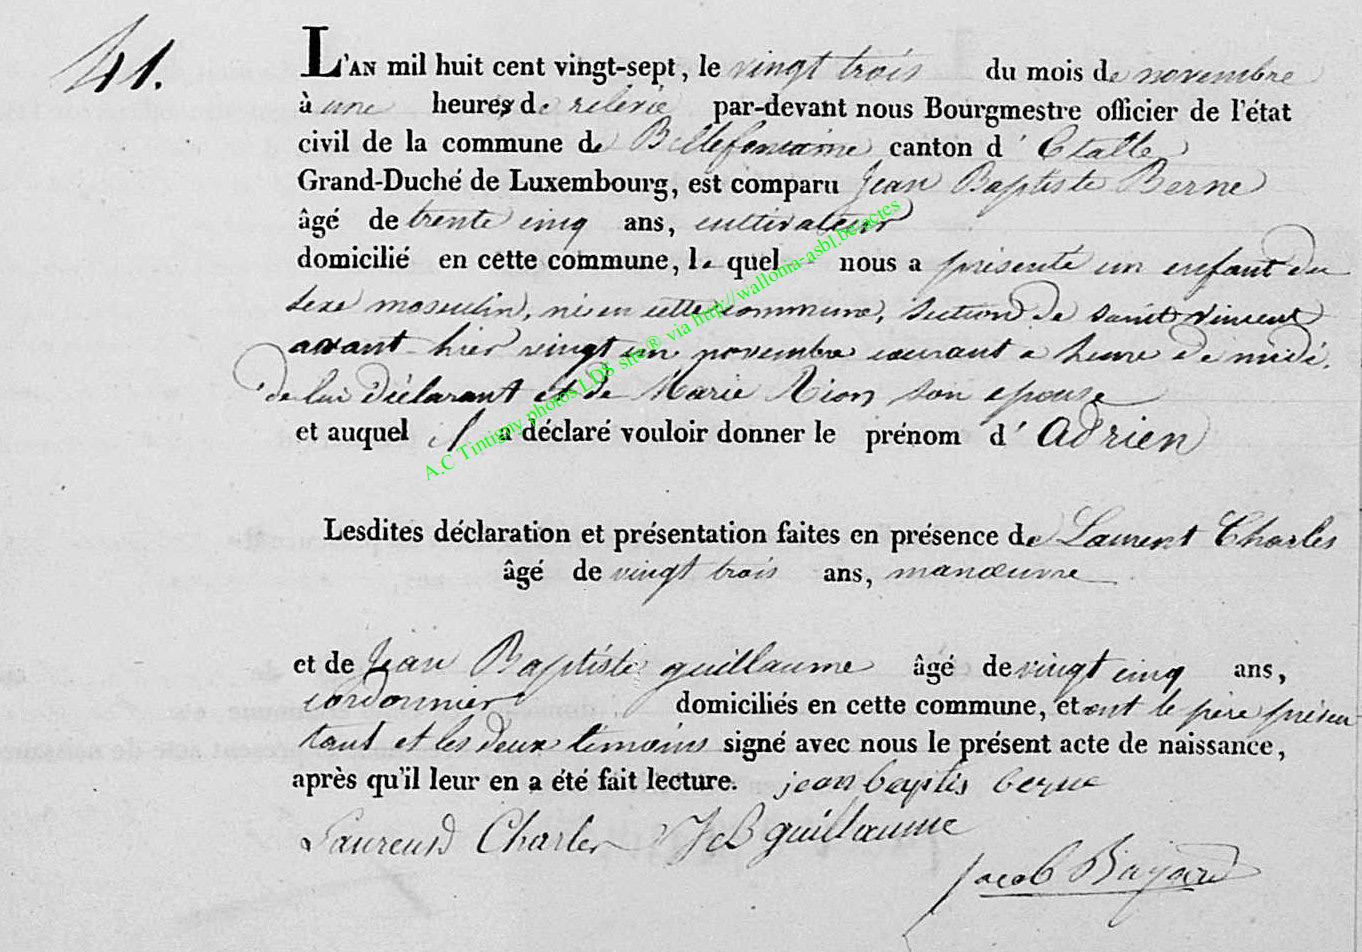 41.
L'AN mil huit cent vingt-sept, le vingt trois du mois de novembre
à une heures de relevée par-devant nous Bourgmestre officier de l'état
civil de la commune de Bellefontaine canton d' Etalle
Grand-Duché de Luxembourg, est comparu Jean Baptiste Berne
âgé de trente cinq ans, cultivateur
domicilié en cette commune, le quel nous a présenté un enfant du
sexe masculin, né en cette commune, section de Saint Vincent
avant-hier vingt un novembre courant a heure de midi.
de lui déclarant et de Marie Rion son epouse
et auquel il a déclaré vouloir donner le prénom d' Adrien
A.C Tintigny photos LDS site® via http://wallonia-asbl.be/actes
Lesdites déclaration et présentation faites en présence de Laurent Charles
âgé de vingt trois ans, manœuvre
et de Jean Baptiste guillaume âgé de vingt cinq ans,
cordonnier domiciliés en cette commune, et ont le père présen
tant et les deux temoins signé avec nous le présent acte de naissance,
après qu'il leur en a été fait lecture. jean baptis berne
Laurend Charler JB guillaume
Jacob Bayard